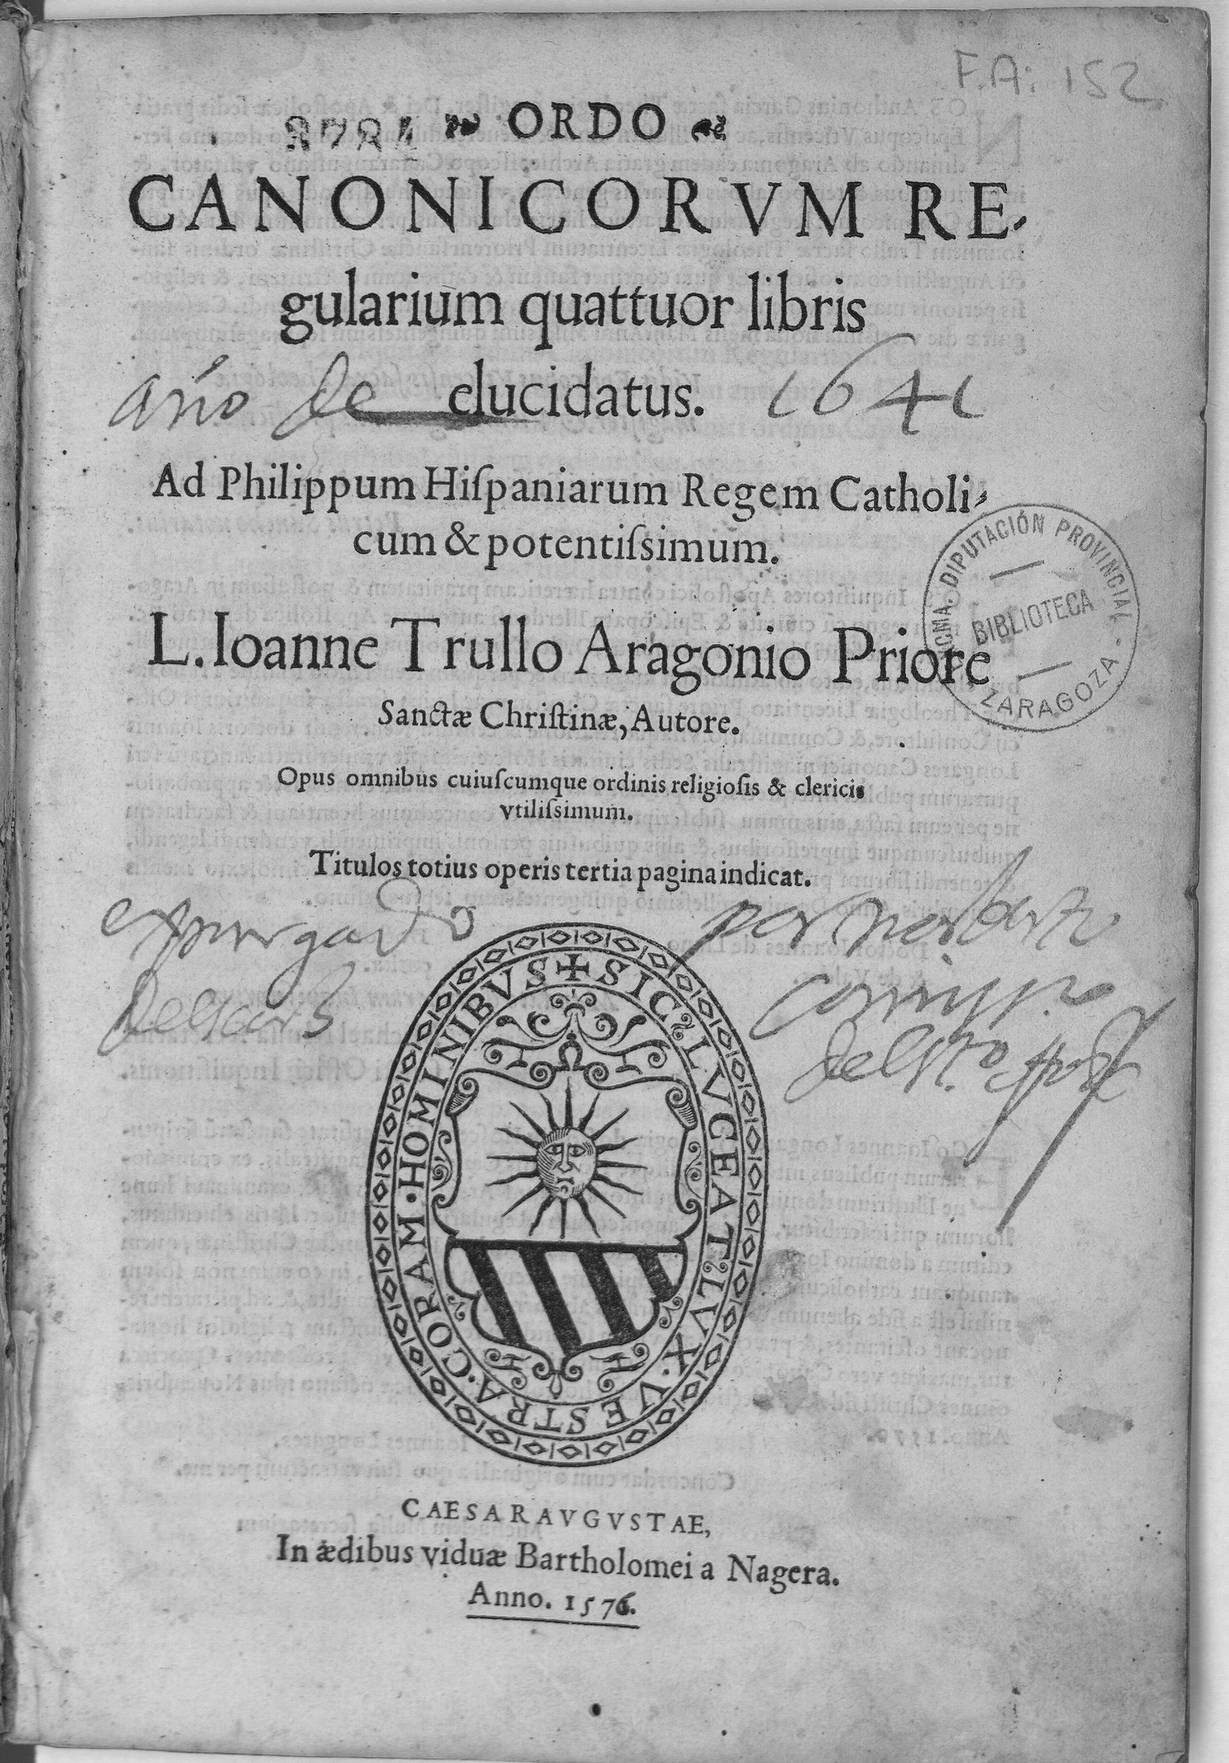 F.A: 152
ORDO
CANONICORVM RE-
gularium quattuor libris
año de elucidatus. 1641
Ad Philippum Hiſpaniarum Regem Catholi-
cum & potentiſsimum.
L. Ioanne Trullo Aragonio Priore
Sanctæ Chriſtinæ, Autore.
Opus omnibus cuiuſcumque ordinis religioſis & clericis
vtiliſsimum.
Titulos totius operis tertia pagina indicat.
DIPUTACIÓN PROVINCIAL - ZARAGOZA -
BIBLIOTECA
expurgado por
SIC LVCEAT LVX VESTRA CORAM HOMINIBVS
CAESARAVGVSTAE,
In ædibus viduæ Bartholomei a Nagera.
Anno. 1576.